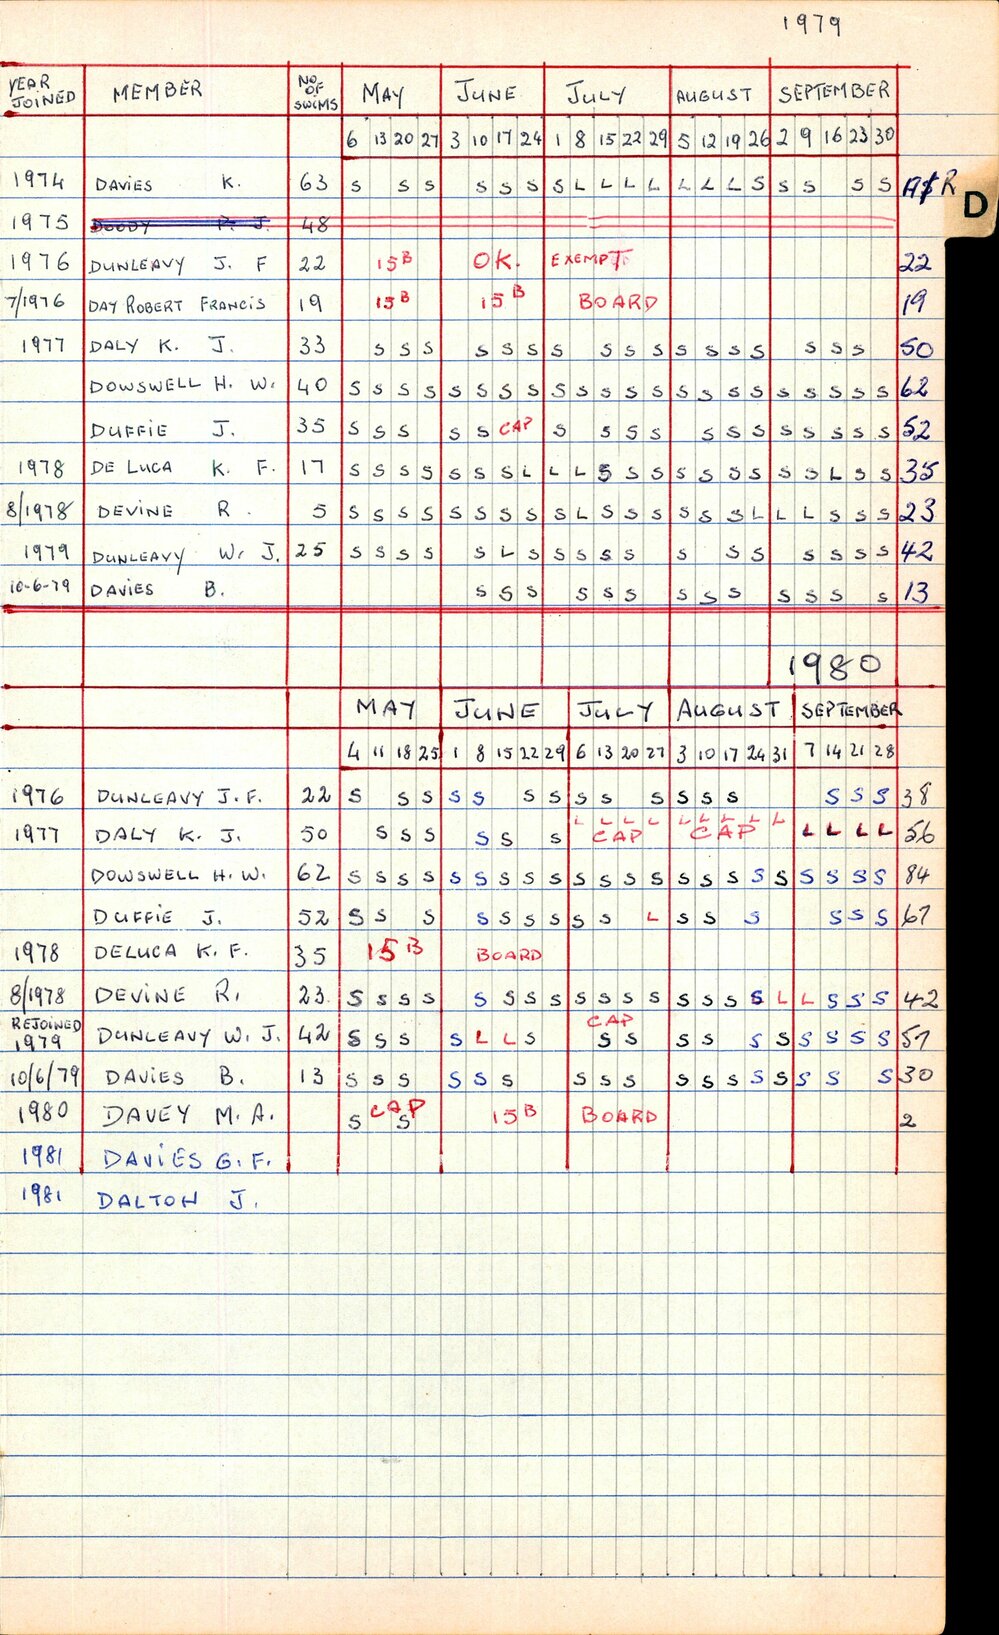 1979
YEAR JOINED MEMBER NO. OF SWIMS MAY JUNE JULY AUGUST SEPTEMBER
6 13 20 27 3 10 17 24 1 8 15 22 29 5 12 19 26 2 9 16 23 30
1974 DAVIES K. 63 S S S S S S S S L L L L L L L S S S S S R
D
1975 48
1976 DUNLEAVY J. F 22 15B OK. EXEMPT 22
7/1976 DAY ROBERT FRANCIS 19 15B 15B BOARD 19
1977 DALY K. J. 33 S S S S S S S S S S S S S S S S S 50
DOWSWELL H. W. 40 S S S S S S S S S S S S S S S S S S S S S S 62
DUFFIE J. 35 S S S S S CAP S S S S S S S S S S S S 52
1978 DE LUCA K. F. 17 S S S S S S S L L L S S S S S S S S S L S S 35
8/1978 DEVINE R. 5 S S S S S S S S S L S S S S S S L L L S S S 23
1979 DUNLEAVY W. J. 25 S S S S S L S S S S S S S S S S S S 42
10-6-79 DAVIES B. S S S S S S S S S S S S S 13
1980
MAY JUNE JULY AUGUST SEPTEMBER
4 11 18 25 1 8 15 22 29 6 13 20 27 3 10 17 24 31 7 14 21 28
1976 DUNLEAVY J. F. 22 S S S S S S S S S S S S S S S S 38
L L L L L L L L L
1977 DALY K. J. 50 S S S S S S CAP CAP L L L L 56
DOWSWELL H. W. 62 S S S S S S S S S S S S S S S S S S S S S S 84
DUFFIE J. 52 S S S S S S S S S L S S S S S S 67
1978 DELUCA K. F. 35 15B BOARD
8/1978 DEVINE R. 23 S S S S S S S S S S S S S S S S L L S S S 42
REJOINED CAP
1979 DUNLEAVY W. J. 42 S S S S L L S S S S S S S S S S S 57
10/6/79 DAVIES B. 13 S S S S S S S S S S S S S S S S S 30
1980 DAVEY M. A. S CAP S 15B BOARD 2
1981 DAVIES G. F.
1981 DALTON J.